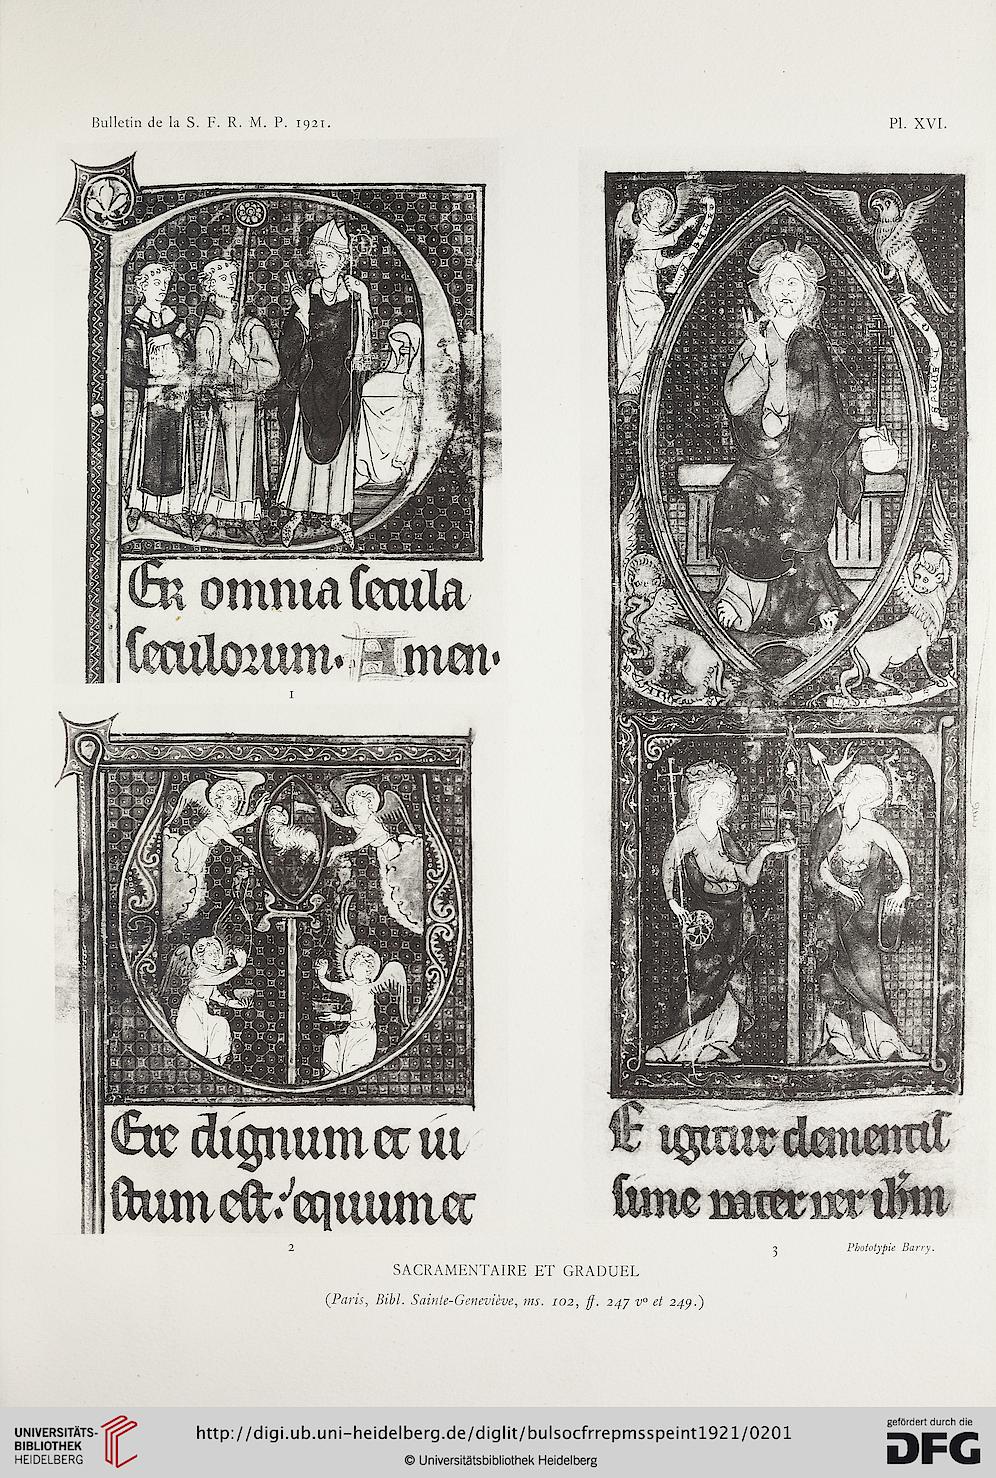 Bulletin de la S. F. R. M. P. 1921.
Pl. XVI.
Er omnia secula
seculorum. Amen.
1
Ere dignum et iu
stum est: equum et
2
E igitur clementis
sime pater per ihm
3
Phototypie Barry.
SACRAMENTAIRE ET GRADUEL
(Paris, Bibl. Sainte-Geneviève, ms. 102, ff. 247 vº et 249.)
UNIVERSITÄTS-
BIBLIOTHEK
HEIDELBERG
http://digi.ub.uni-heidelberg.de/diglit/bulsocfrrepmsspeint1921/0201
© Universitätsbibliothek Heidelberg
gefördert durch die
DFG